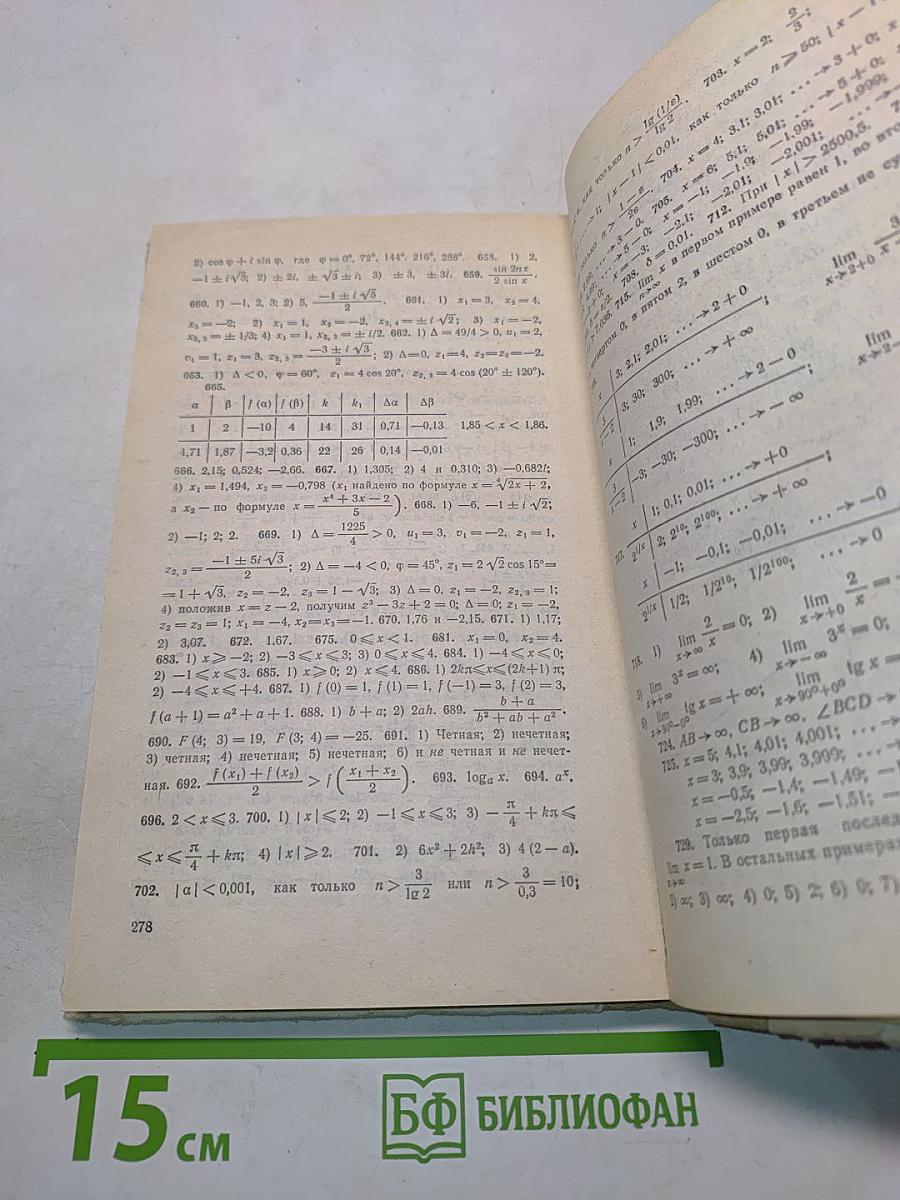 2) cos φ + i sin φ, где φ = 0°, 72°, 144°, 216°, 288°. 658. 1) 2,
−1 ± i√3; 2) ± 2i, ± √3 ± i; 3) ± 3, ± 3i. 659. sin 2nx / 2 sin x.
660. 1) −1, 2, 3; 2) 5, (−1 ± i√5)/2. 661. 1) x₁ = 3, x₂ = 4,
x₃ = −2; 2) x₁ = 1, x₂ = −2, x₃,₄ = ± i√2; 3) x₁ = −2,
x₂,₃ = ± 1/3; 4) x₁ = 1, x₂,₃ = ± i/2. 662. 1) Δ = 49/4 > 0, u₁ = 2,
v₁ = 1, z₁ = 3, z₂,₃ = (−3 ± i√3)/2; 2) Δ=0, z₁=4, z₂=z₃=−2.
663. 1) Δ < 0, φ = 60°, z₁ = 4 cos 20°, z₂,₃ = 4 cos (20° ± 120°).
665.
α | β | f (α) | f (β) | k | k₁ | Δα | Δβ
1 | 2 | −10 | 4 | 14 | 31 | 0,71 | −0,13 1,85 < x < 1,86.
1,71 | 1,87 | −3,2 | 0,36 | 22 | 26 | 0,14 | −0,01
666. 2,15; 0,524; −2,66. 667. 1) 1,305; 2) 4 и 0,310; 3) −0,682;
4) x₁ = 1,494, x₂ = −0,798 (x₁ найдено по формуле x = ⁴√2x + 2,
а x₂ — по формуле x = (x⁴ + 3x − 2)/5). 668. 1) −6, −1 ± i√2;
2) −1; 2; 2. 669. 1) Δ = 1225/4 > 0, u₁ = 3, v₁ = −2, z₁ = 1,
z₂,₃ = (−1 ± 5i√3)/2; 2) Δ = −4 < 0, φ = 45°, z₁ = 2√2 cos 15° =
= 1 + √3, z₂ = −2, z₃ = 1 − √3; 3) Δ = 0, z₁ = −2, z₂,₃ = 1;
4) положив x = z − 2, получим z³ − 3z + 2 = 0; Δ = 0; z₁ = −2,
z₂ = z₃ = 1; x₁ = −4, x₂=x₃=−1. 670. 1,76 и −2,15. 671. 1) 1,17;
2) 3,07. 672. 1,67. 675. 0 ⩽ x < 1. 681. x₁ = 0, x₂ = 4.
683. 1) x ⩾ −2; 2) −3 ⩽ x ⩽ 3; 3) 0 ⩽ x ⩽ 4. 684. 1) −4 ⩽ x ⩽ 0;
2) −1 ⩽ x ⩽ 3. 685. 1) x ⩾ 0; 2) x ⩽ 4. 686. 1) 2kπ ⩽ x ⩽ (2k+1) π;
2) −4 ⩽ x ⩽ +4. 687. 1) f (0) = 1, f (1) = 1, f (−1) = 3, f (2) = 3,
f (a + 1) = a² + a + 1. 688. 1) b + a; 2) 2ah. 689. (b + a)/(b² + ab + a²).
690. F (4; 3) = 19, F (3; 4) = −25. 691. 1) Четная; 2) нечетная;
3) четная; 4) нечетная; 5) нечетная; 6) и не четная и не нечет-
ная. 692. (f (x₁) + f (x₂))/2 > f ((x₁ + x₂)/2). 693. logₐ x. 694. aˣ.
696. 2 < x ⩽ 3. 700. 1) |x| ⩽ 2; 2) −1 ⩽ x ⩽ 3; 3) −π/4 + kπ ⩽
⩽ x ⩽ π/4 + kπ; 4) |x| ⩾ 2. 701. 2) 6x² + 2h²; 3) 4 (2 − a).
702. |α| < 0,001, как только n > 3/lg 2 или n > 3/0,3 = 10;
278
как только n > lg (1/ε)/lg 2. 703. x = 2; 2/3;
1; |x − 1| < 0,01, как только n > 50; |x − 1
n > (1 − ε)/2ε. 704. x = 4; 3,1; 3,01; ... → 3 + 0; x
→ 3 − 0. 705. x = 6; 5,1; 5,01; ... → 5 + 0;
→ 5 − 0; x = −1; −1,9; −1,99; −1,999;
x = −3; −2,1; −2,01; −2,001; ... →
708. δ = 0,01. 712. При |x| > 2500,5.
715. lim x в первом примере равен 1, во вто
0, в пятом 2, в шестом 0, в третьем не су
lim x→2+0 3
x | 3; 2,1; 2,01; ... → 2 + 0;
3/(x − 2) | 3; 30; 300; ... → + ∞ lim x→2−
x | 1; 1,9; 1,99; ... → 2 − 0;
3/(x − 2) | −3; −30; −300; ... → − ∞
x | 1; 0,1; 0,01; ... → +0
717. 2^(1/x) | 2; 2¹⁰; 2¹⁰⁰; ... → + ∞;
x | −1; −0,1; −0,01; ... → −0
2^(1/x) | 1/2; 1/2¹⁰; 1/2¹⁰⁰; ... → 0
718. 1) lim x→∞ 2/x = 0; 2) lim x→+0 2/x = +
3) lim x→+∞ 3ˣ = ∞; 4) lim x→−∞ 3ˣ = 0;
lim x→90°−0° tg x = + ∞; lim x→90°+0° tg x =
724. AB → ∞, CB → ∞, ∠BCD →
725. x = 5; 4,1; 4,01; 4,001; ... →
x = 3; 3,9; 3,99; 3,999; ... →
x = −0,5; −1,4; −1,49; −1
x = −2,5; −1,6; −1,51; −
729. Только первая послед
lim x = 1. В остальных примерах
∞; 3) ∞; 4) 0; 5) 2; 6) 0; 7)
15 см
БФ БИБЛИОФАН